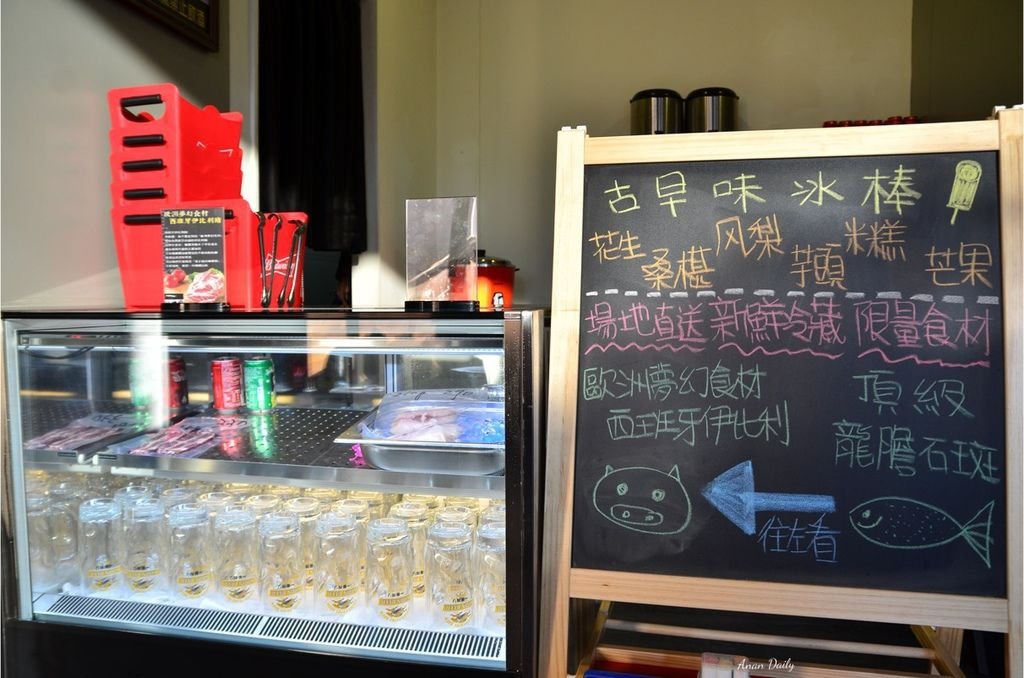 歐洲夢幻食材
西班牙伊比利豬
Budweiser
古早味冰棒
花生 桑椹 风梨 芋頭 米糕 芒果
場地直送 新鮮冷藏 限量食材
歐洲夢幻食材
西班牙伊比利
頂級
龍膽石斑
往左看
Anan Daily